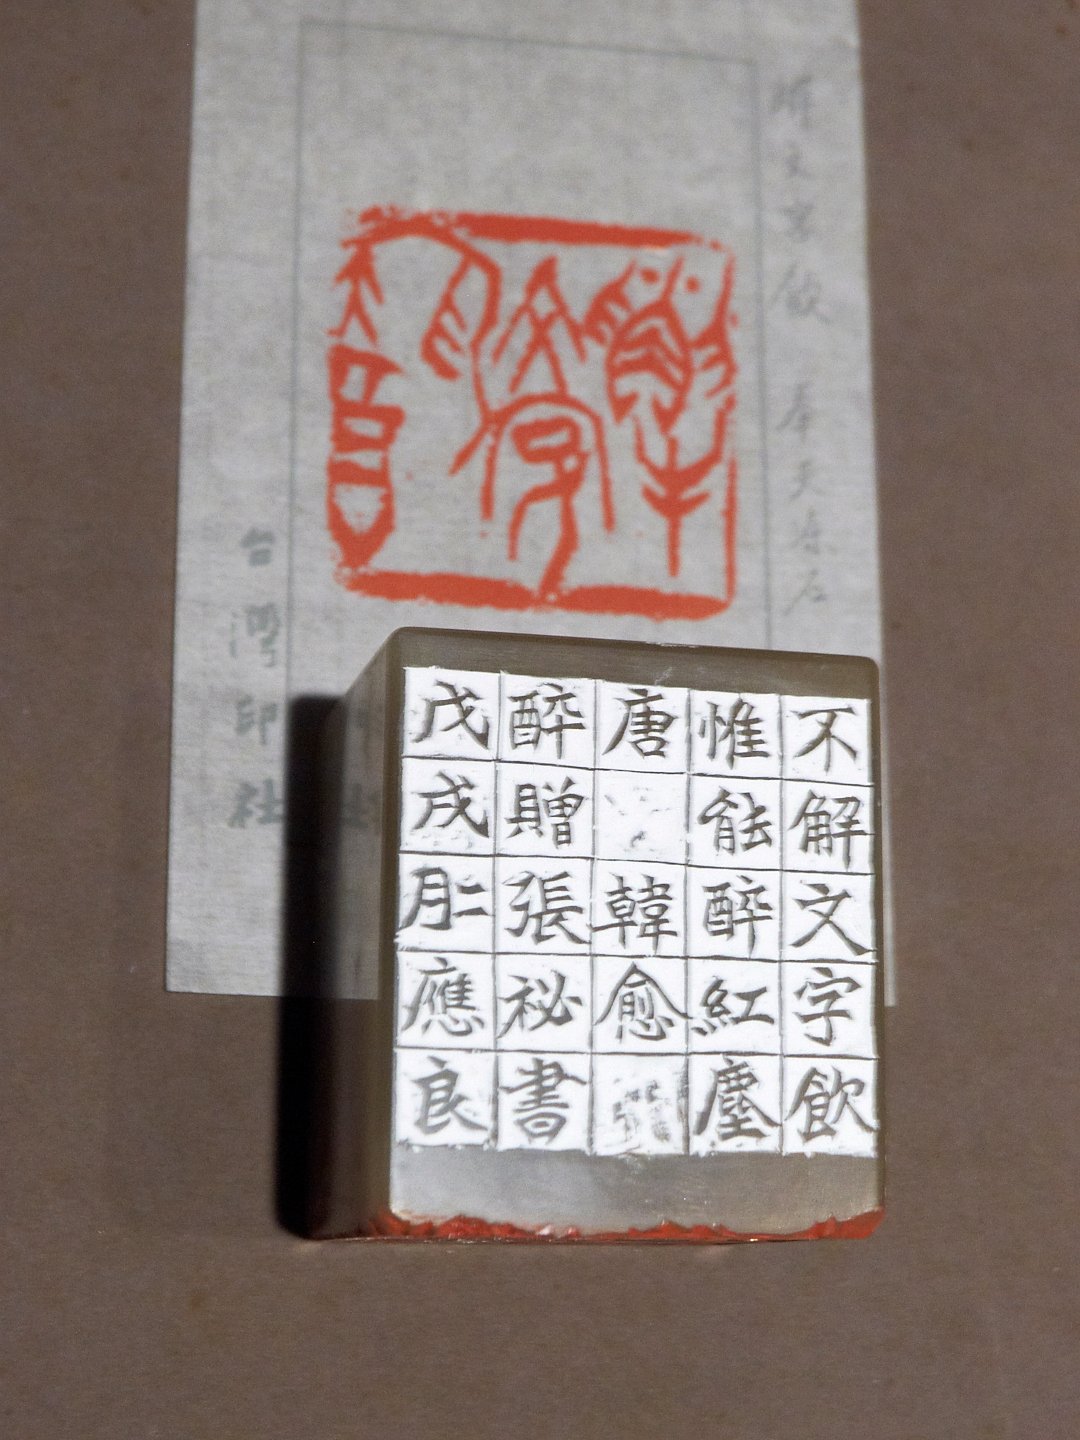 解文字飲
解文字飲 奉天凍石
台灣印社
不解文字飲
惟能醉紅塵
唐 韓愈
醉贈張祕書
戊戌二月應良